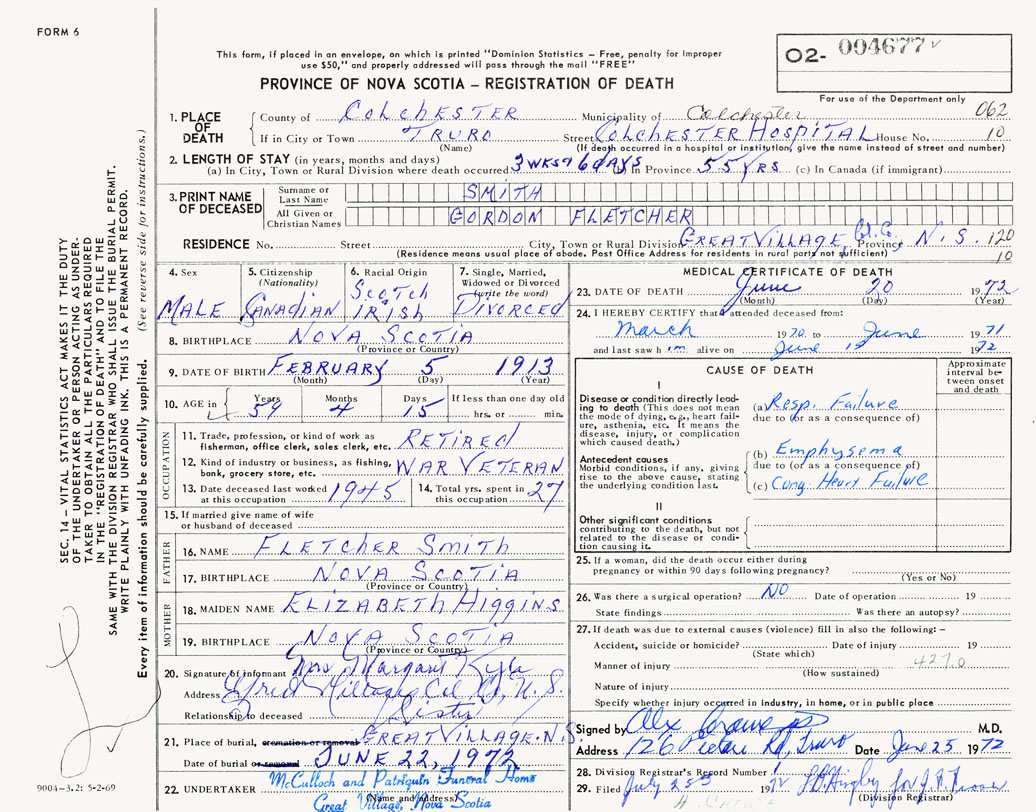 FORM 6
This form, if placed in an envelope, on which is printed "Dominion Statistics – Free, penalty for improper
use $50," and properly addressed will pass through the mail "FREE"
O2- 004677
For use of the Department only
PROVINCE OF NOVA SCOTIA – REGISTRATION OF DEATH
1. PLACE OF DEATH County of COLCHESTER Municipality of Colchester 062
If in City or Town TRURO Street COLCHESTER HOSPITAL House No. 10
(Name) (If death occurred in a hospital or institution, give the name instead of street and number)
2. LENGTH OF STAY (in years, months and days)
(a) In City, Town or Rural Division where death occurred 3 WKS 6 DAYS (b) In Province 55 YRS (c) In Canada (if immigrant)
3. PRINT NAME OF DECEASED
Surname or Last Name SMITH
All Given or Christian Names GORDON FLETCHER
RESIDENCE No. Street City, Town or Rural Division GREAT VILLAGE, Col. Co. Province N.S. 120
(Residence means usual place of abode. Post Office Address for residents in rural parts not sufficient) 10
4. Sex MALE
5. Citizenship (Nationality) CANADIAN
6. Racial Origin SCOTCH IRISH
7. Single, Married, Widowed or Divorced (write the word) DIVORCED
8. BIRTHPLACE NOVA SCOTIA
(Province or Country)
9. DATE OF BIRTH FEBRUARY 5 1913
(Month) (Day) (Year)
10. AGE in Years 59 Months 4 Days 15 If less than one day old hrs. or min.
OCCUPATION
11. Trade, profession, or kind of work as fisherman, office clerk, sales clerk, etc. RETIRED
12. Kind of industry or business, as fishing, bank, grocery store, etc. WAR VETERAN
13. Date deceased last worked at this occupation 1945
14. Total yrs. spent in this occupation 27
15. If married give name of wife or husband of deceased
FATHER
16. NAME FLETCHER SMITH
17. BIRTHPLACE NOVA SCOTIA
(Province or Country)
MOTHER
18. MAIDEN NAME ELIZABETH HIGGINS
19. BIRTHPLACE NOVA SCOTIA
(Province or Country)
20. Signature of informant Mrs Margaret Kyle
Address Great Village Col Co N.S.
Relationship to deceased Sister
21. Place of burial, cremation or removal GREAT VILLAGE, N.S.
Date of burial or removal JUNE 22, 1972
22. UNDERTAKER McCulloch and Patriquin Funeral Home
(Name and Address)
Great Village, Nova Scotia
MEDICAL CERTIFICATE OF DEATH
23. DATE OF DEATH June 20 1972
(Month) (Day) (Year)
24. I HEREBY CERTIFY that I attended deceased from:
March 1970 to June 1971
and last saw him alive on June 1972
CAUSE OF DEATH
Approximate interval between onset and death
I
Disease or condition directly leading to death (This does not mean the mode of dying, e.g., heart failure, asthenia, etc. It means the disease, injury, or complication which caused death.)
(a) Resp. Failure
due to (or as a consequence of)
Antecedent causes
Morbid conditions, if any, giving rise to the above cause, stating the underlying condition last.
(b) Emphysema
due to (or as a consequence of)
(c) Cong Heart Failure
II
Other significant conditions contributing to the death, but not related to the disease or condition causing it.
25. If a woman, did the death occur either during pregnancy or within 90 days following pregnancy?
(Yes or No)
26. Was there a surgical operation? NO Date of operation 19
State findings Was there an autopsy?
27. If death was due to external causes (violence) fill in also the following: –
Accident, suicide or homicide? Date of injury 19
(State which)
Manner of injury 427.0
(How sustained)
Nature of injury
Specify whether injury occurred in industry, in home, or in public place
Signed by Alex M.D.
Address 126 Pictou Rd, Truro Date June 25 1972
28. Division Registrar's Record Number
29. Filed July 19 for
(Division Registrar)
SEC. 14 – VITAL STATISTICS ACT MAKES IT THE DUTY
OF THE UNDERTAKER OR PERSON ACTING AS UNDER-
TAKER TO OBTAIN ALL THE PARTICULARS REQUIRED
IN THE "REGISTRATION OF DEATH" AND TO FILE THE
SAME WITH THE DIVISION REGISTRAR WHO SHALL ISSUE THE BURIAL PERMIT.
WRITE PLAINLY WITH UNFADING INK. THIS IS A PERMANENT RECORD.
Every item of information should be carefully supplied. (See reverse side for instructions.)
9004–3.2: 5-2-69